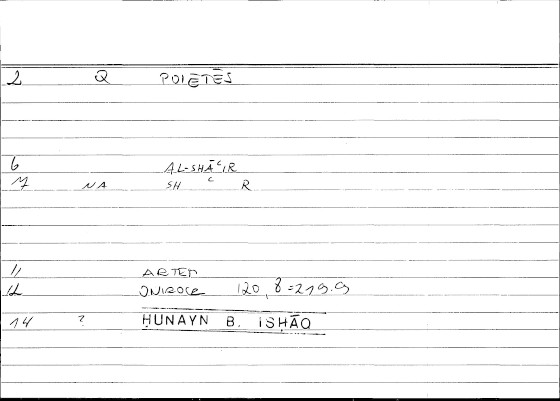 2 Q POIETĒS
6 AL-SHĀʿIR
7 NA SH ʿ R
11 ARTEM
12 ONIROCR 120,8=219.9
14 ? ḤUNAYN B. ISḤĀQ